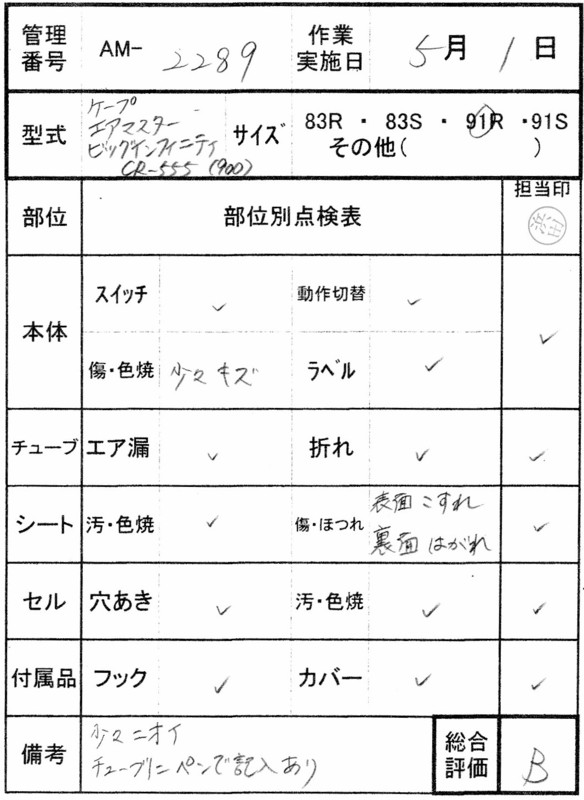 管理番号 AM- 2289 作業実施日 5月1日
型式 ケープ
エアマスター
ビックインフィニティ
CR-555 (900)
サイズ 83R ・ 83S ・ 91R ・91S
その他( )
部位 部位別点検表 担当印
本体 スイッチ ✓ 動作切替 ✓ ✓
傷・色焼 少々キズ ラベル ✓
チューブ エア漏 ✓ 折れ ✓ ✓
シート 汚・色焼 ✓ 傷・ほつれ 表面こすれ ✓
裏面はがれ
セル 穴あき ✓ 汚・色焼 ✓ ✓
付属品 フック ✓ カバー ✓ ✓
備考 少々ニオイ
チューブにペンで記入あり
総合評価 B